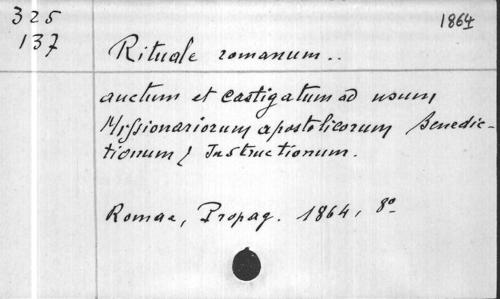 325
137
1864
Rituale romanum..
auctum et castigatum ad usum
Missionariorum apostolicorum Benedic-
tionum Instructionum.
Romae, Propag. 1864, 8º